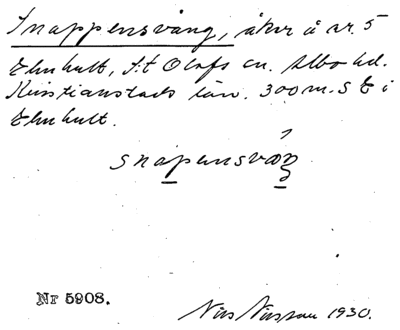 Snappensvång, åker å nr. 5
Elmhult, S:t Olofs sn. Albo hd.
Kristianstads län. 300 m. S Ö i
Elmhult.
snapensvåŋ
Nr 5908.
Nils Nilsson 1930.